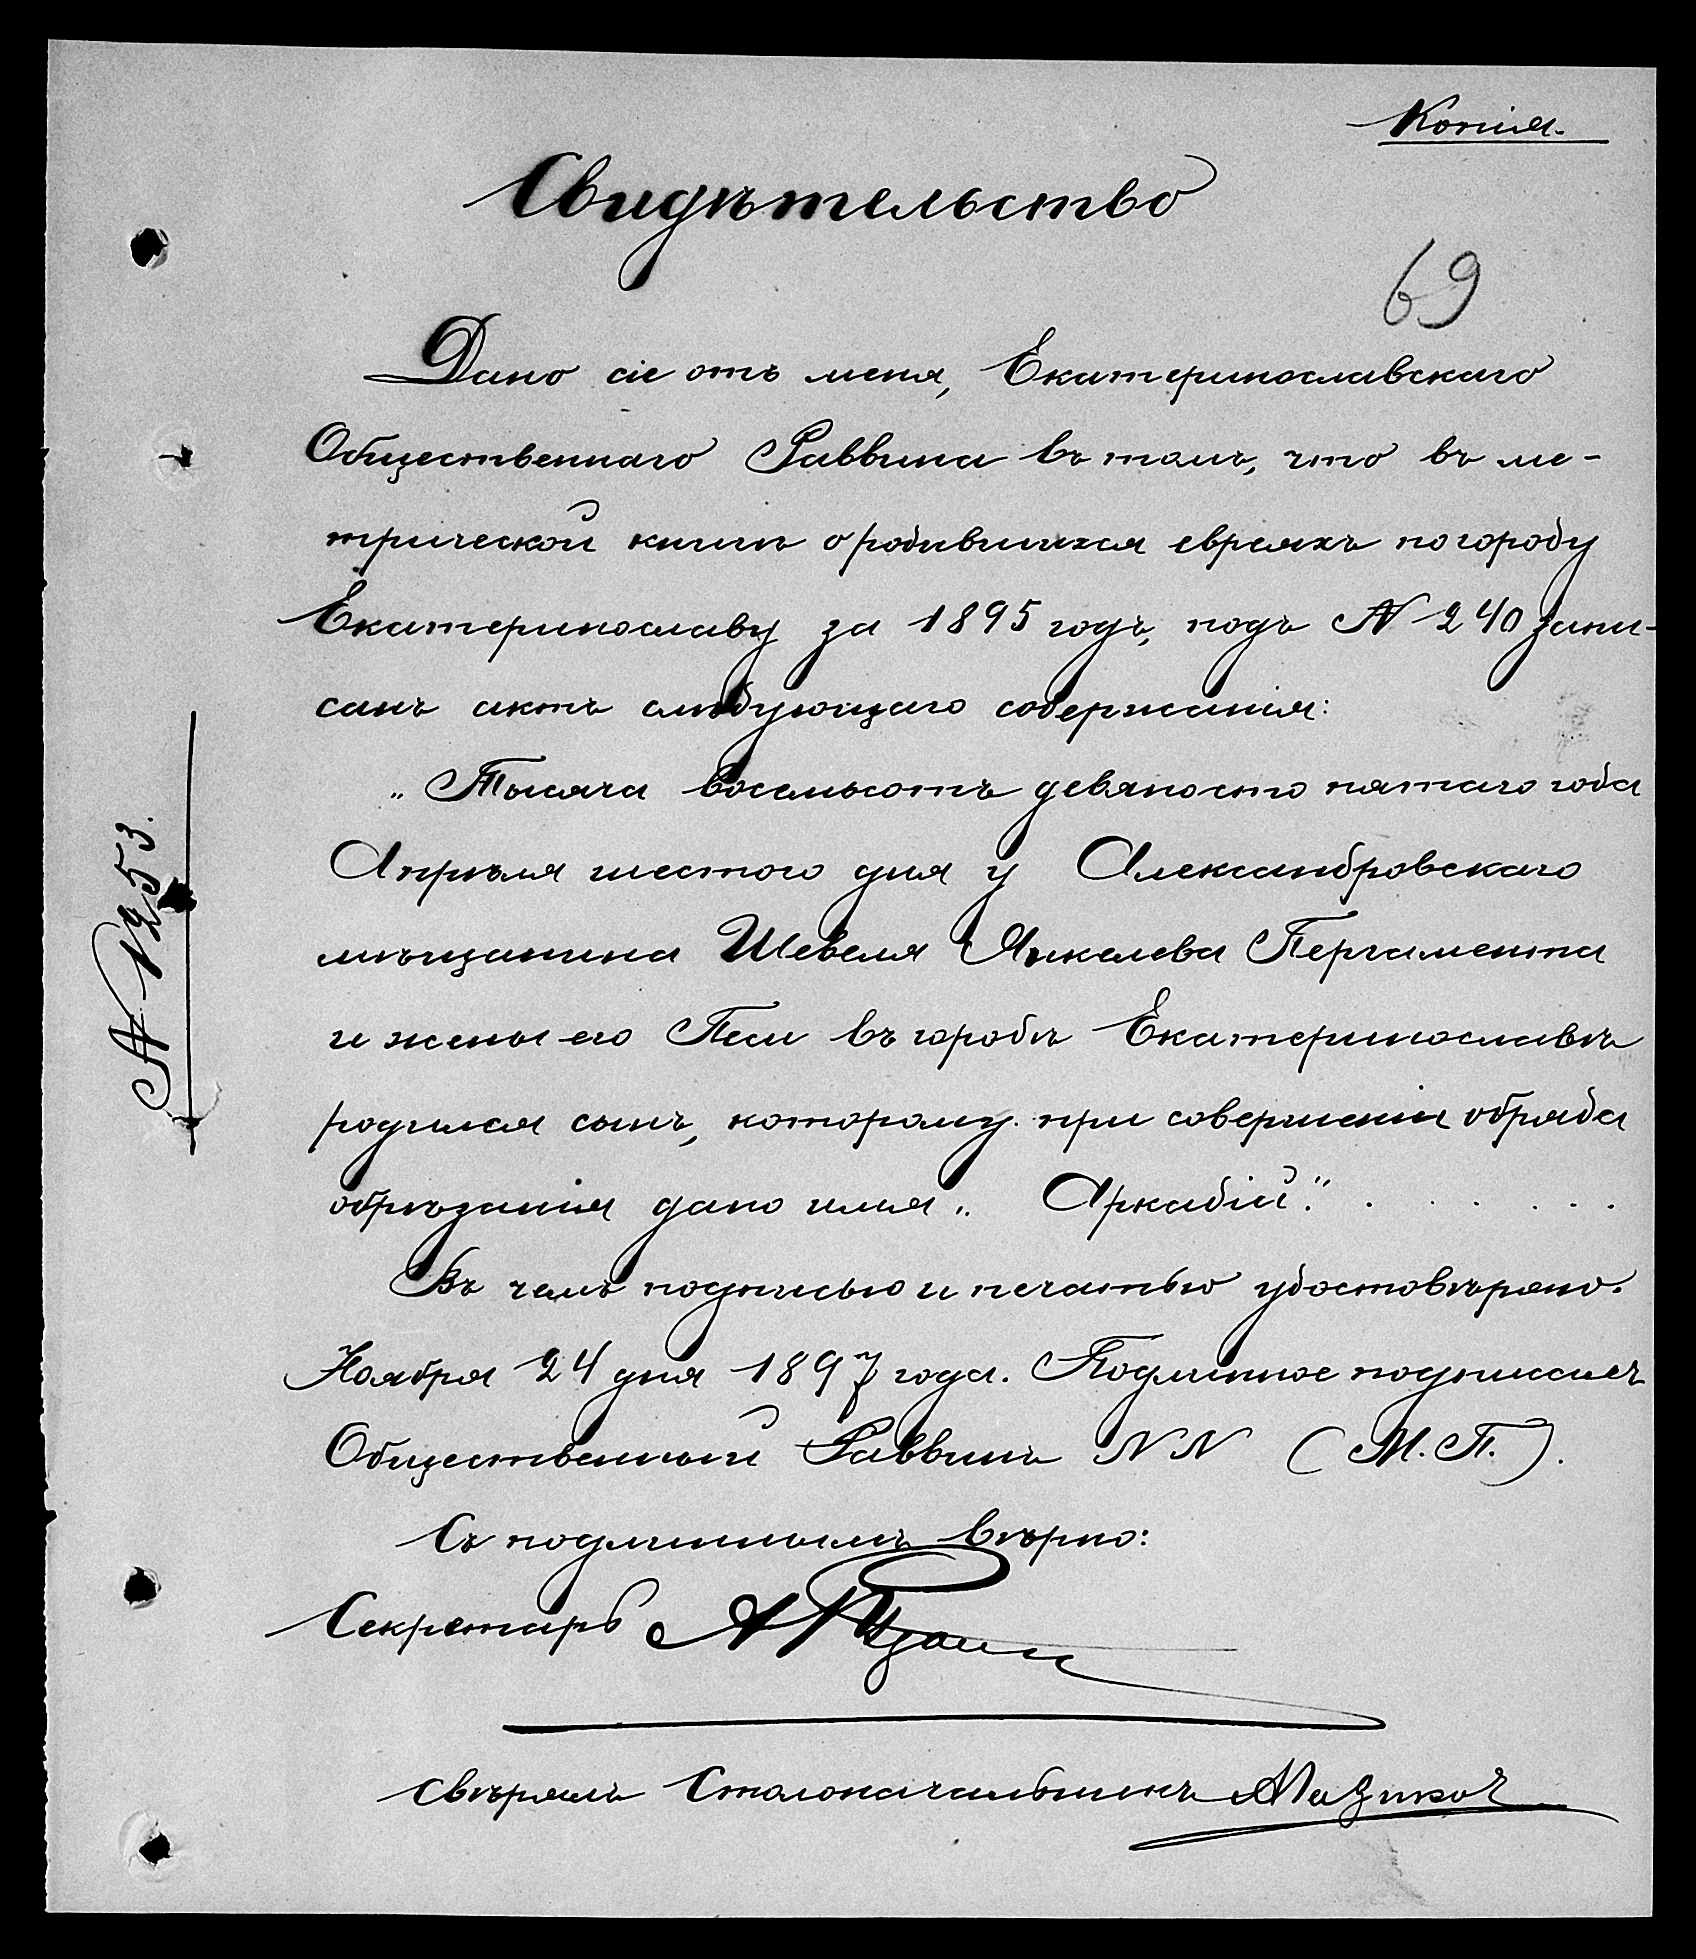 Копія.
Свидѣтельство
69
Дано сіе отъ меня, Екатеринославскаго
Общественнаго Раввина въ томъ, что въ ме-
трической книгѣ о родившихся евреяхъ по городу
Екатеринославу за 1895 годъ, подъ № 240 запи-
санъ актъ слѣдующаго содержанія:
„Тысяча восемьсотъ девяносто пятаго года
Апрѣля шестого дня у Александровскаго
мѣщанина Шевеля Янкелева Пергамента
и жены его Песи въ городѣ Екатеринославѣ
родился сынъ, которому при совершеніи обряда
обрѣзанія дано имя „Аркадій". . . . . . .
Въ чемъ подписью и печатью удостовѣряю.
Ноября 24 дня 1897 года. Подлинное подписалъ
Общественный Раввинъ NN (М.П.).
Съ подлиннымъ вѣрно:
Секретарь А
Свѣрялъ Столоначальникъ
№ 1253.